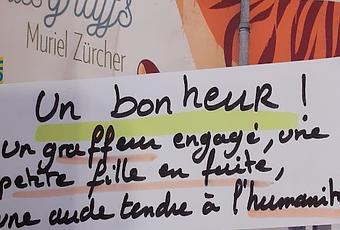 Muriel Zürcher
Un bonheur !
Un graffeur engagé, une
petite fille en fuite,
une aude tendre à l'humanité